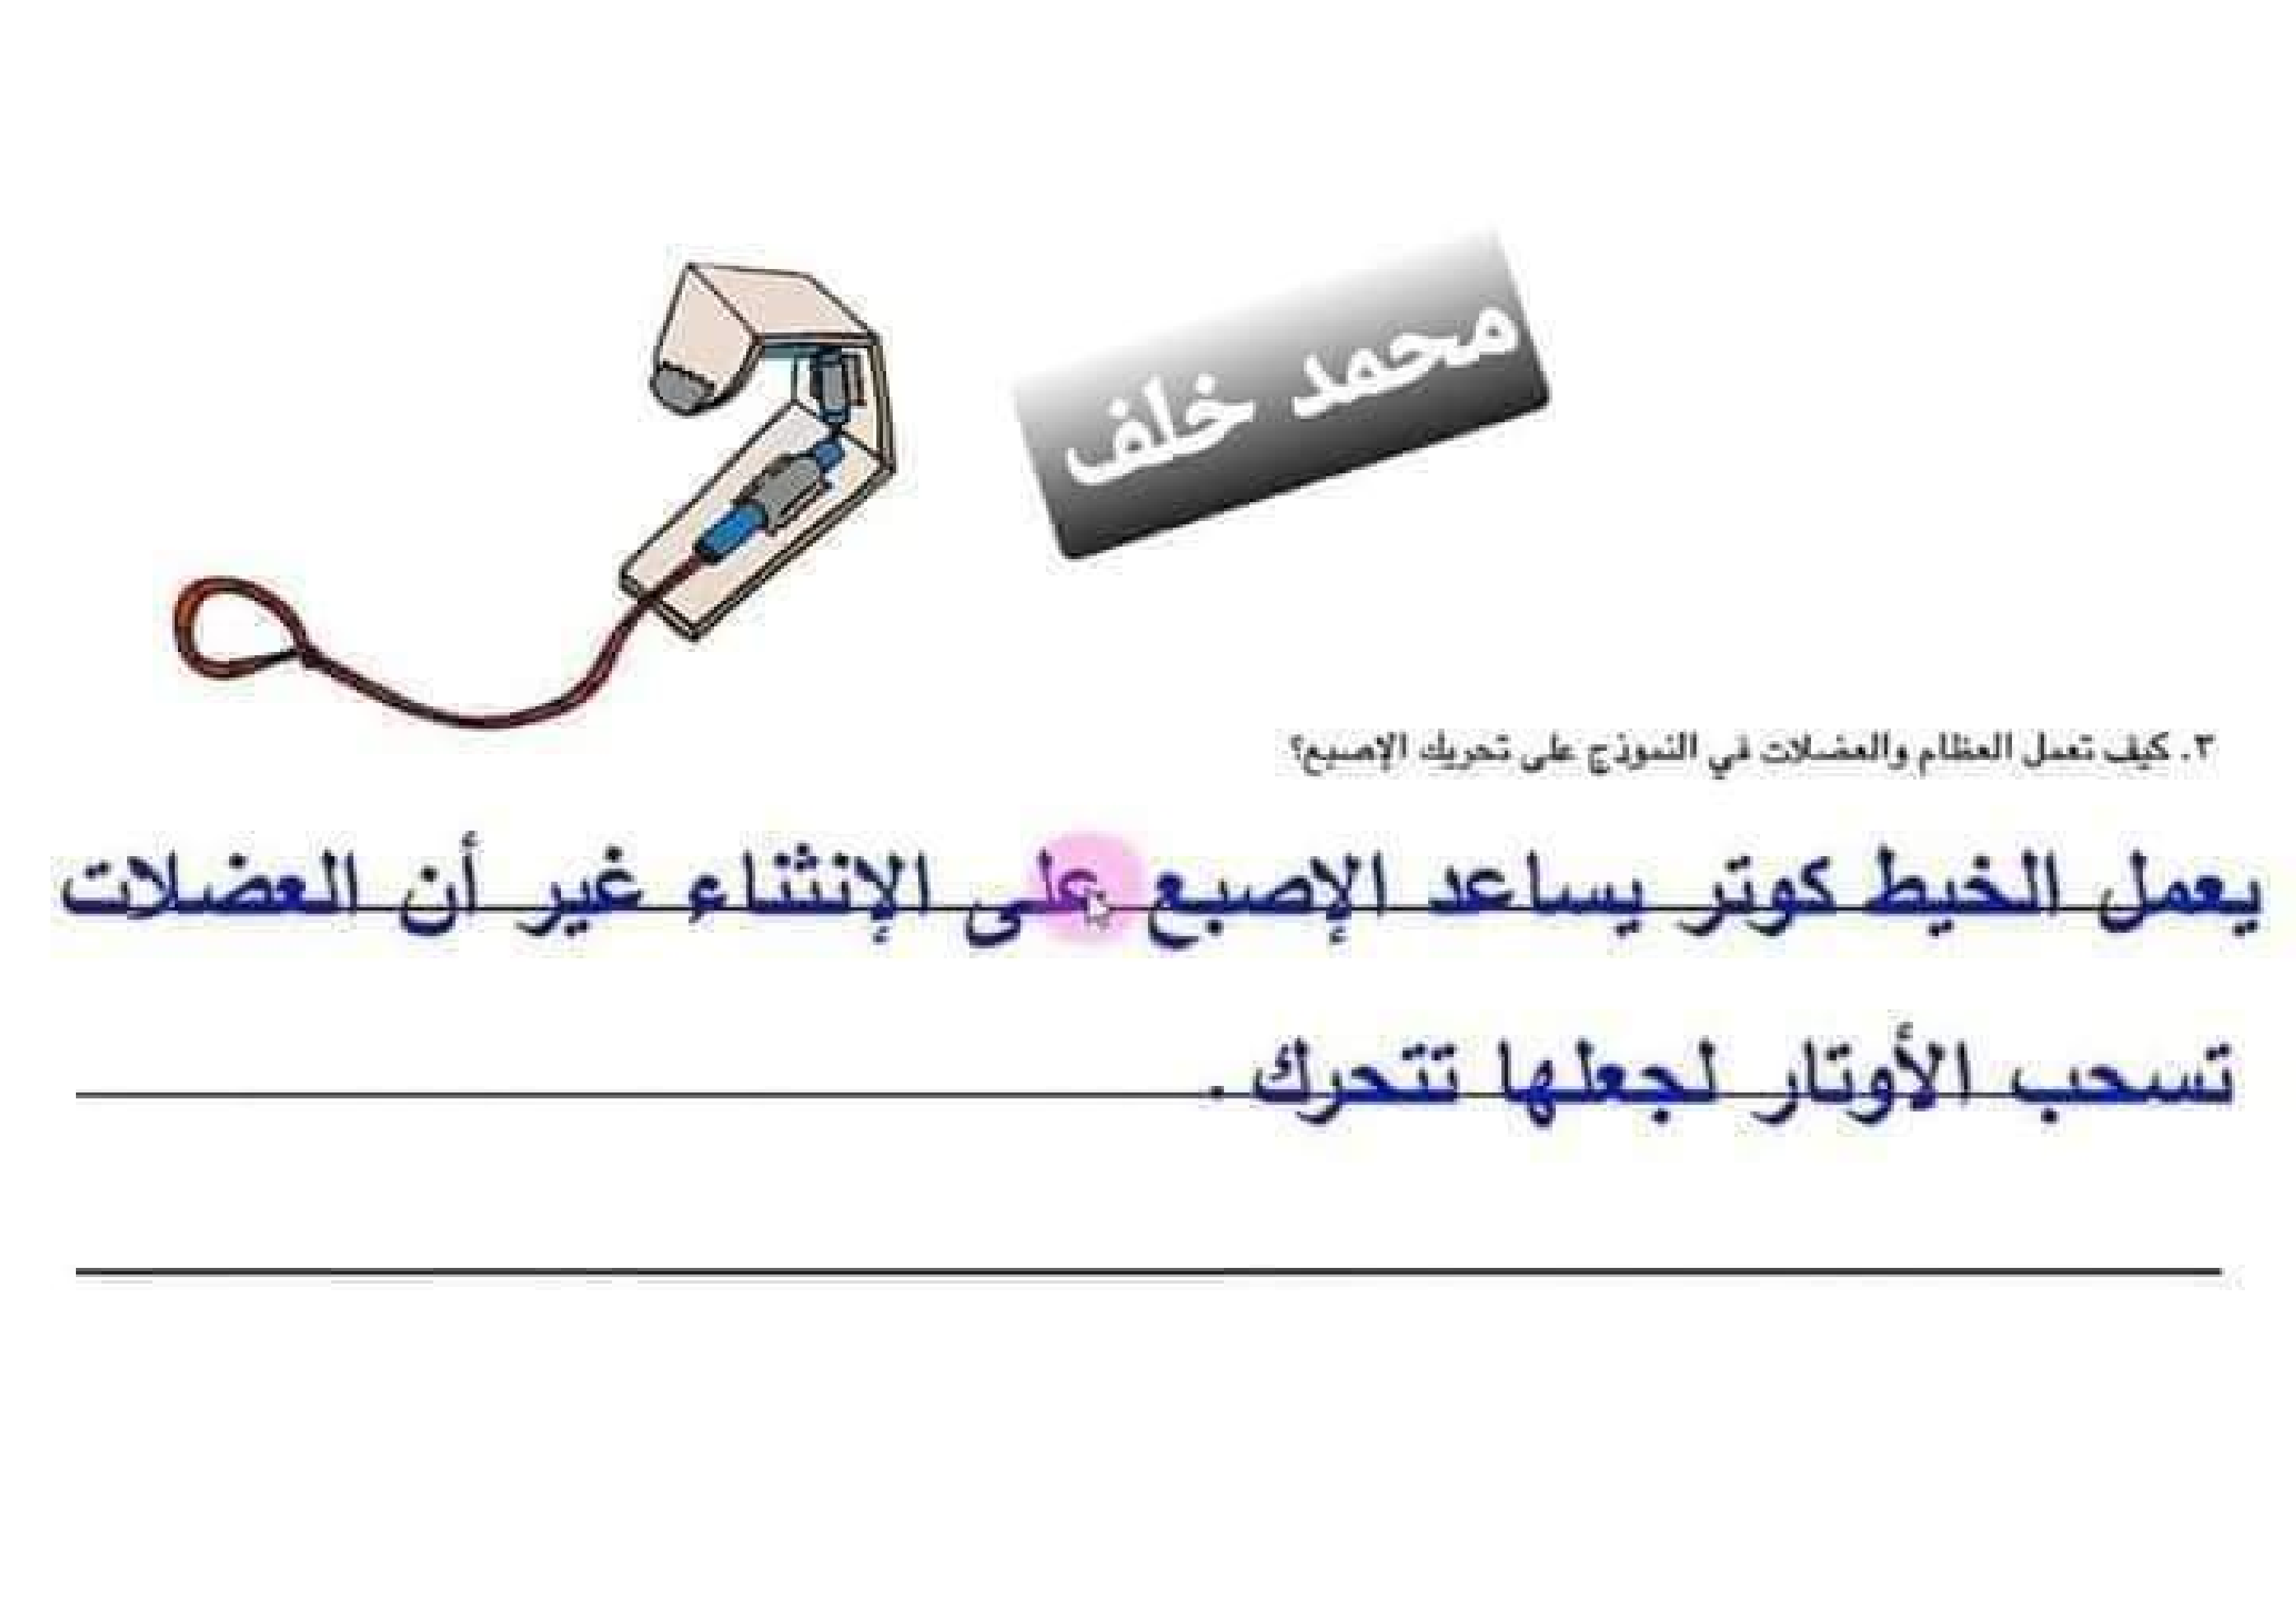 محمد خلف
٣. كيف تعمل العظام والعضلات في النموذج على تحريك الإصبع؟
يعمل الخيط كوتر يساعد الإصبع على الإنثناء غير أن العضلات
تسحب الأوتار لجعلها تتحرك .